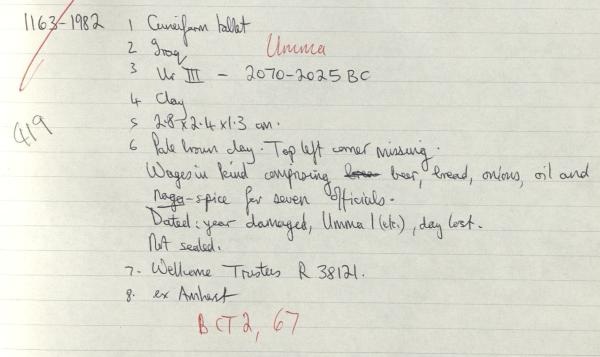 1163-1982 1 Cuneiform tablet
2 Iraq Umma
3 Ur III - 2070-2025 BC
4 Clay
419
5 2.8 x 2.4 x 1.3 cm.
6 Pale brown clay. Top left corner missing.
Wages in kind comprising beer, bread, onions, oil and
naga-spice for seven officials.
Dated: year damaged, Umma 1 (etc.), day lost.
Not sealed.
7. Wellcome Trustees R 38121.
8. ex Amherst
BCT2, 67